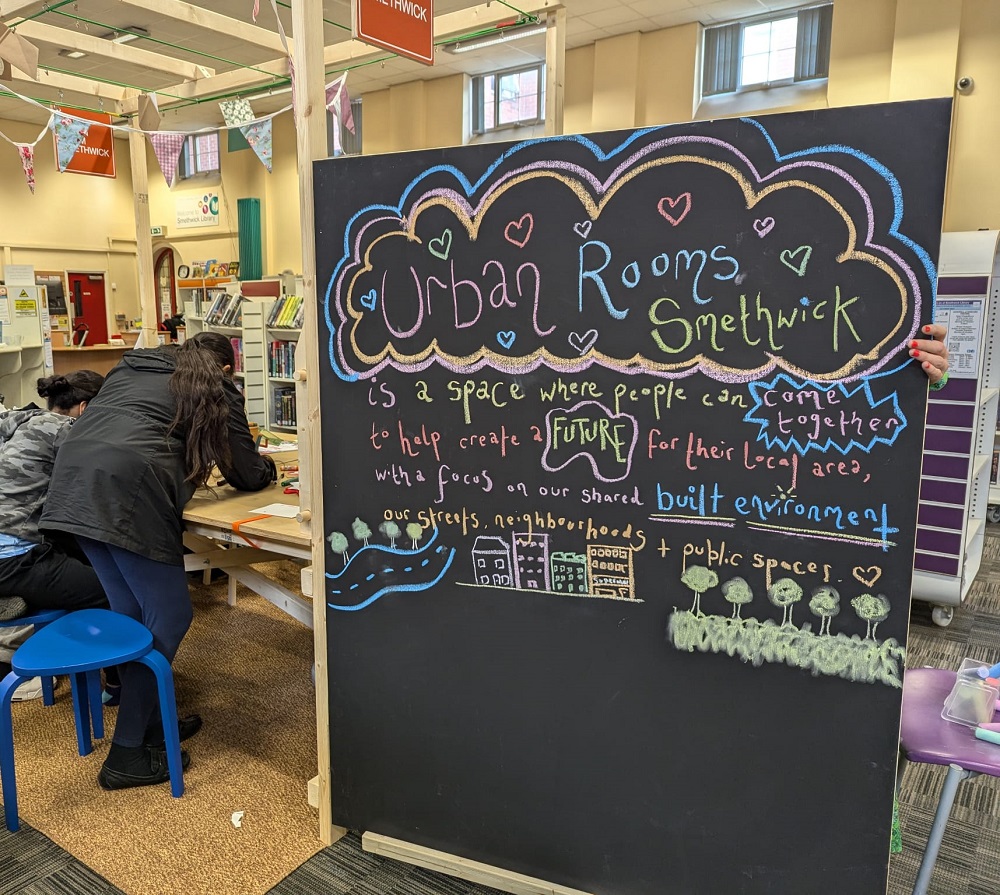 SMETHWICK
THWICK
Smethwick Library
Urban Rooms
Smethwick
is a space where people can come
together
to help create a FUTURE for their local area,
with a focus on our shared built environment
our streets, neighbourhoods
+ public spaces.